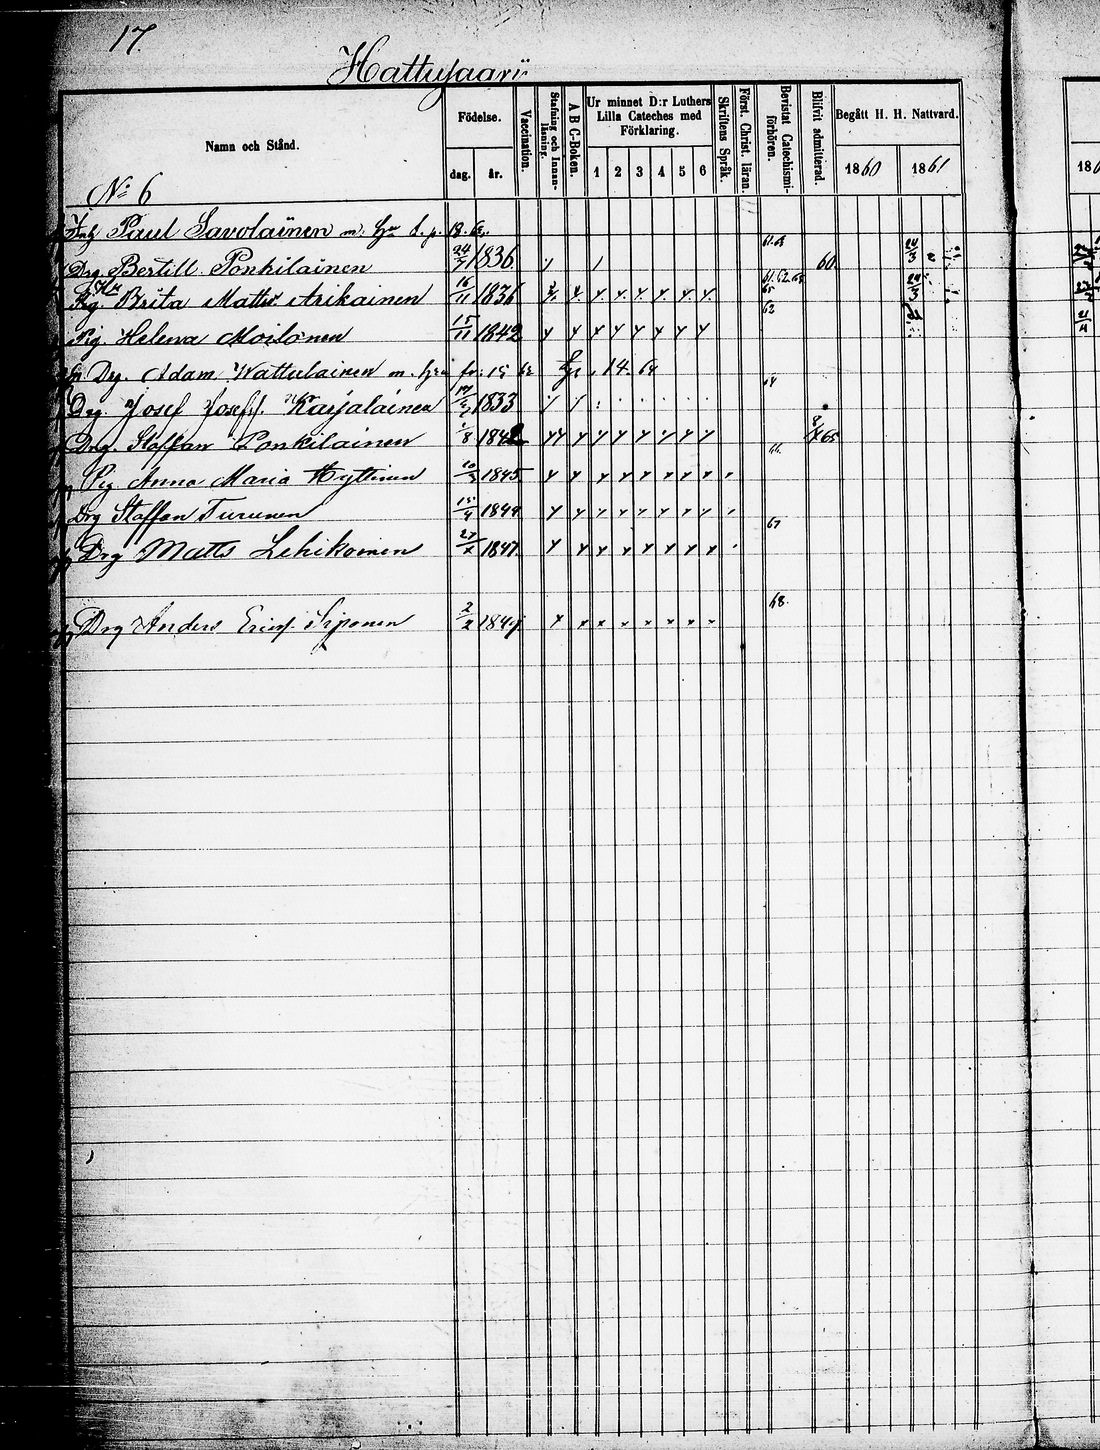 17.
Hattusaari
Namn och Stånd.
Födelse.
dag. år.
Vaccination.
Stafning och Innanläsning.
A B C-Boken.
Ur minnet D:r Luthers Lilla Cateches med Förklaring.
1 2 3 4 5 6
Skriftens Språk.
Först. Christ. läran.
Bevistat Catechismiförhören.
Blifvit admitterad.
Begått H. H. Nattvard.
1860 1861
186
No 6
Inh Paul Savolainen m. hu s. p. 18.
Drg. Bertill Ponkilainen 24/7 1836 61. 60.
Pig. Brita Matts Arikainen 16/11 1836 61. 62. 65 24/3
Pig. Helena Moilanen 15/11 1842 62
Drg. Adam Wattulainen m. hru fr: 15 14. 64
Drg. Josef Josefs. Karjalainen 1833 64
Drg. Staffan Ponkilainen /8 184 65
Pig Anna Maria Hyttinen 10/3 1845 66.
Drg Staffan Turunen 15/4 1844
Drg Matts Lehikoinen 27/x 1847 67
Drg Anders Ericss. Siponen 2/2 184 68.